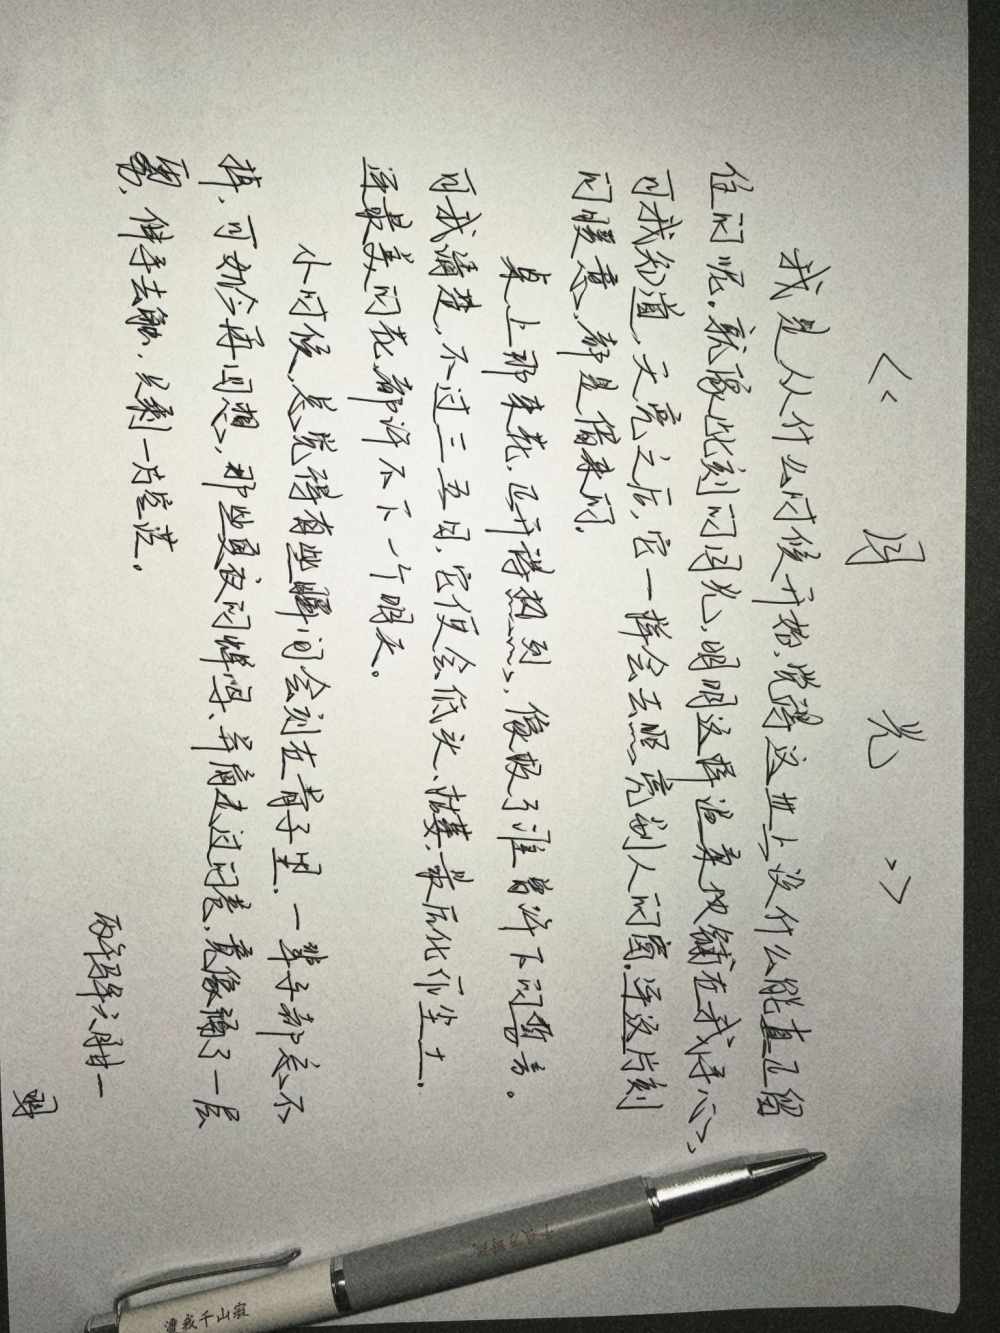 《月光》
我是从什么时候开始,觉得这世上没什么能真正留
住的呢。就像此刻的月光,明明这样温柔地铺在我手心,
可我知道,天亮之后,它一样会去照亮别人的窗。连这片刻
的暖意,都是借来的。
桌上那束花,正开得热烈,像极了谁曾许下的誓言。
可我清楚,不过三五日,它便会低头、枯萎,最后化作尘土。
连最美的花,都许不下一个明天。
小时候,总觉得有些瞬间会刻在骨子里,一辈子都忘不
掉,可如今再回想,那些夏夜的蝉鸣、并肩走过的巷,竟像隔了一层
雾,伸手去触,只剩一片空茫。
丙午年六月廿一
明
千里万籁寂
漫我千山寂